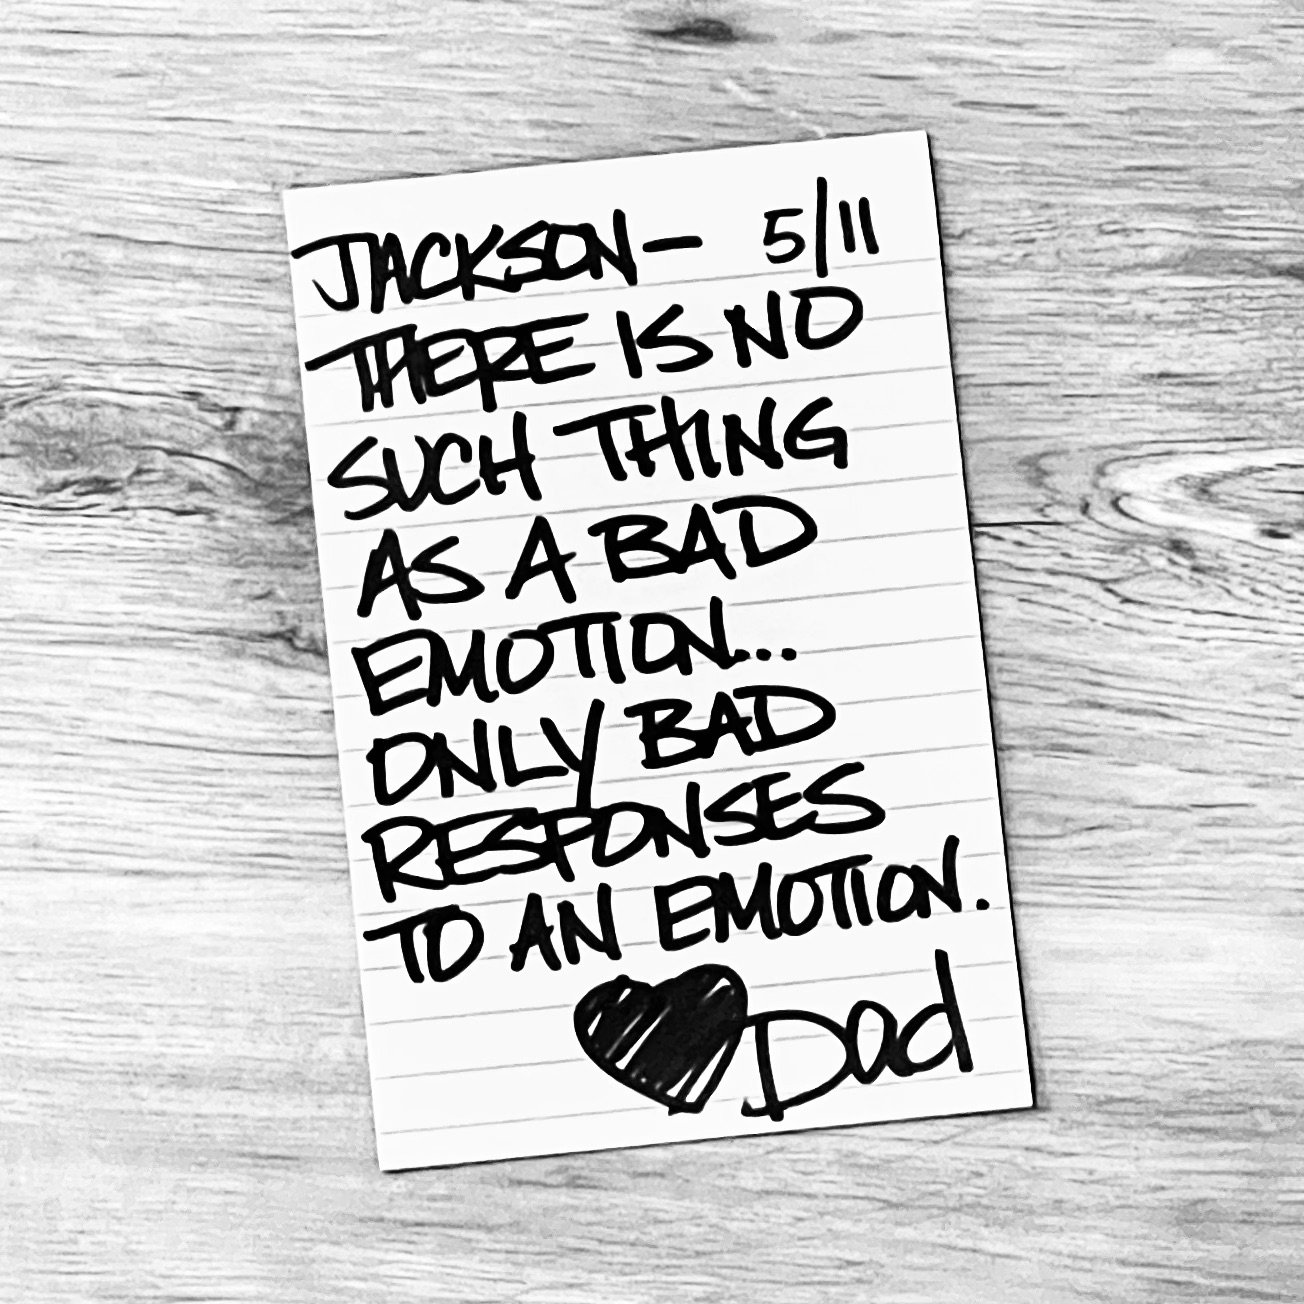 JACKSON— 5/11
THERE IS NO
SUCH THING
AS A BAD
EMOTION...
ONLY BAD
RESPONSES
TO AN EMOTION.
♥Dad